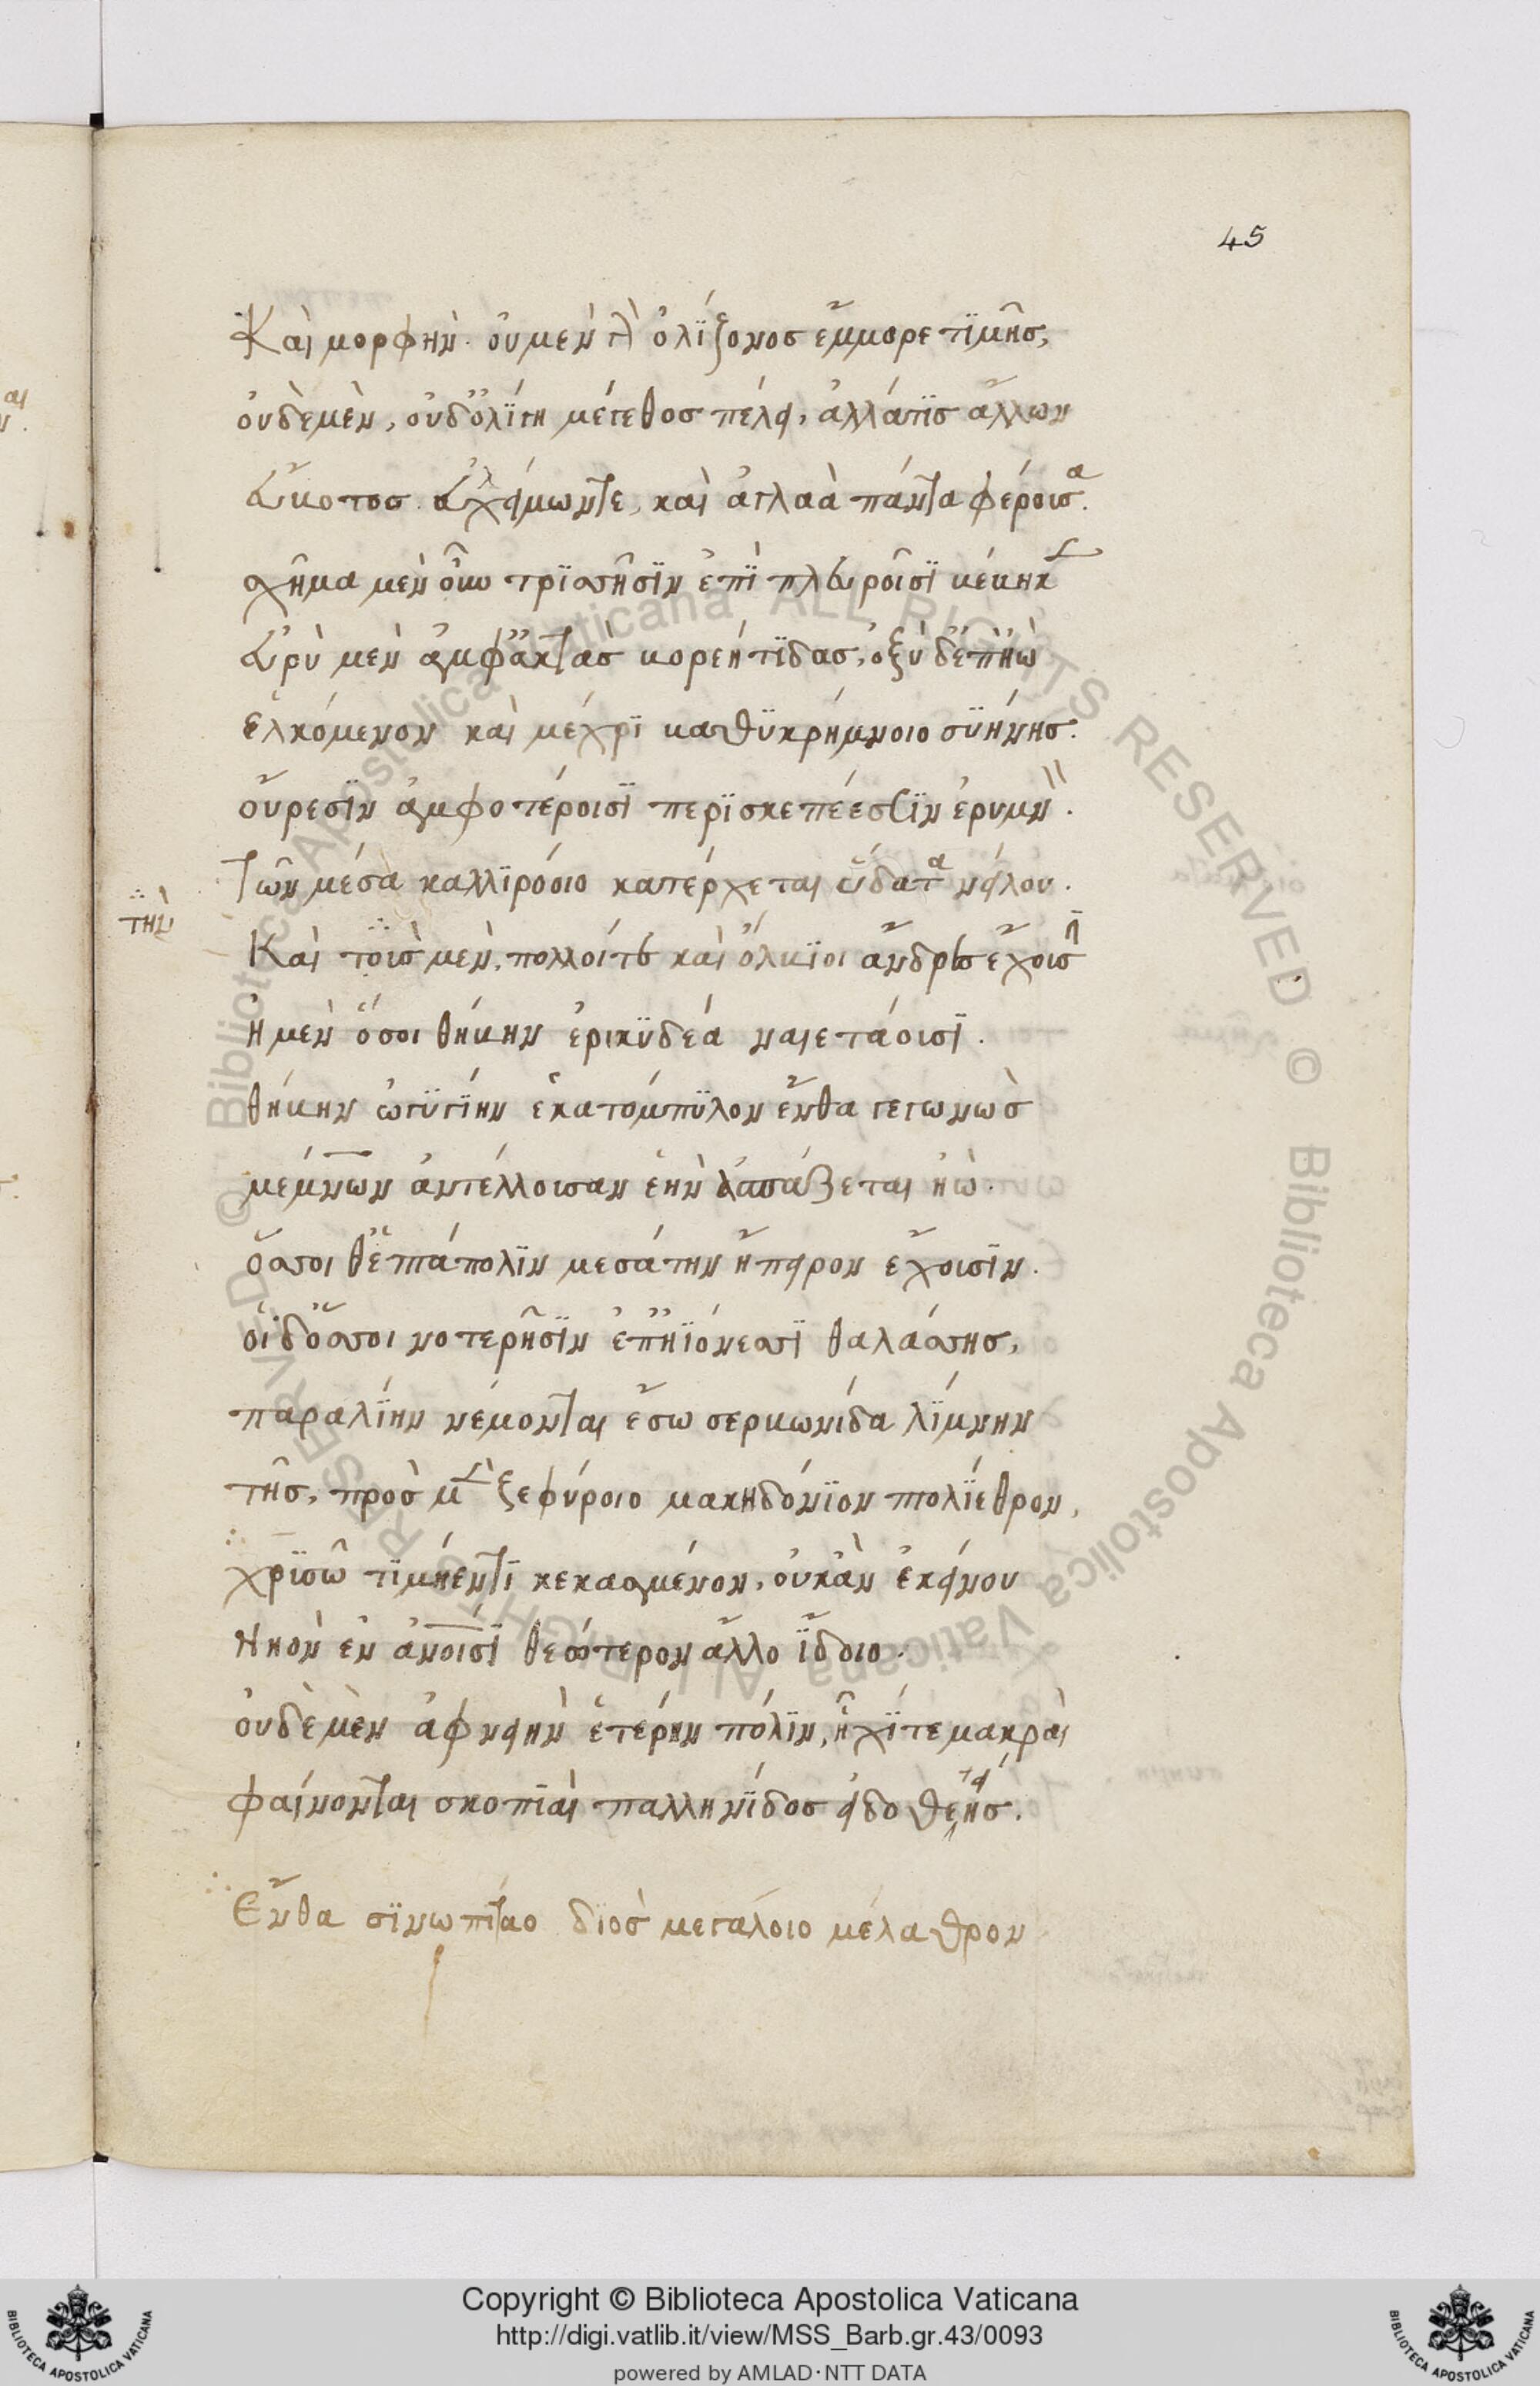 45
Καὶ μορφὴν· οὐ μὲν γὰρ ὀλίζονος ἔμμορε τιμῆς,
οὐδὲ μὲν, οὐδ' ὀλίγη μέγεθος πέλει, ἀλλά τις ἄλλων
εὔβοτος εὐλείμων τε, καὶ ἀγλαὰ πάντα φέρουσα.
σχῆμα μὲν οὖν τρισσῇσιν ἐπὶ πλευρῇσι
εὐρὺ μὲν ἀμφ' ἀκτὰς βορεήτιδας, ὀξὺ δ' ἐπ' ἠὼ
ἑλκόμενον καὶ μέχρι βαθυκρήμνοιο συήνης.
οὔρεσιν ἀμφοτέροισι περισκεπέεσσιν ἐρυμν
τῶν μέσα καλλιρόοιο κατέρχεται ὕδατα νείλου.
τὴν
Καὶ τοῖς μὲν, πολλοί τε καὶ ὄλβιοι ἄνδρες ἔχουσι
Ἠμὲν ὅσοι θήβην ἐρικυδέα ναιετάουσι.
θήβην ὠγυγίην ἑκατόμπυλον ἔνθα γεγωνὼς
μέμνων ἀντέλλουσαν ἑὴν ἀσπάζεται ἠώ.
ὅσσοι θ' ἑπτάπολιν μεσάτην ἤπειρον ἔχουσιν.
οἵ δ' ὅσσοι νοτερῇσιν ἐπ' ἠϊόνεσσι θαλάσσης,
παραλίην νέμονται ἔσω σερβωνίδα λίμνην
τῆς, πρὸς μὲν ζεφύροιο μακηδόνιον πτολίεθρον,
χρισῶ τιμήεντι κεκασμένον, οὐκ ἂν ἐκείνου
Νηὸν ἐν ἀνοισι θεώτερον ἄλλο ἴδοιο.
οὐδὲ μὲν ἀφνειὴν ἑτέρην πόλιν, ἧχί τε μακραὶ
φαίνονται σκοπιαὶ παλληνίδος εἰδοθεείης.
Ἔνθα σινωπίταο διὸς μεγάλοιο μέλαθρον
Copyright © Biblioteca Apostolica Vaticana
http://digi.vatlib.it/view/MSS_Barb.gr.43/0093
powered by AMLAD·NTT DATA